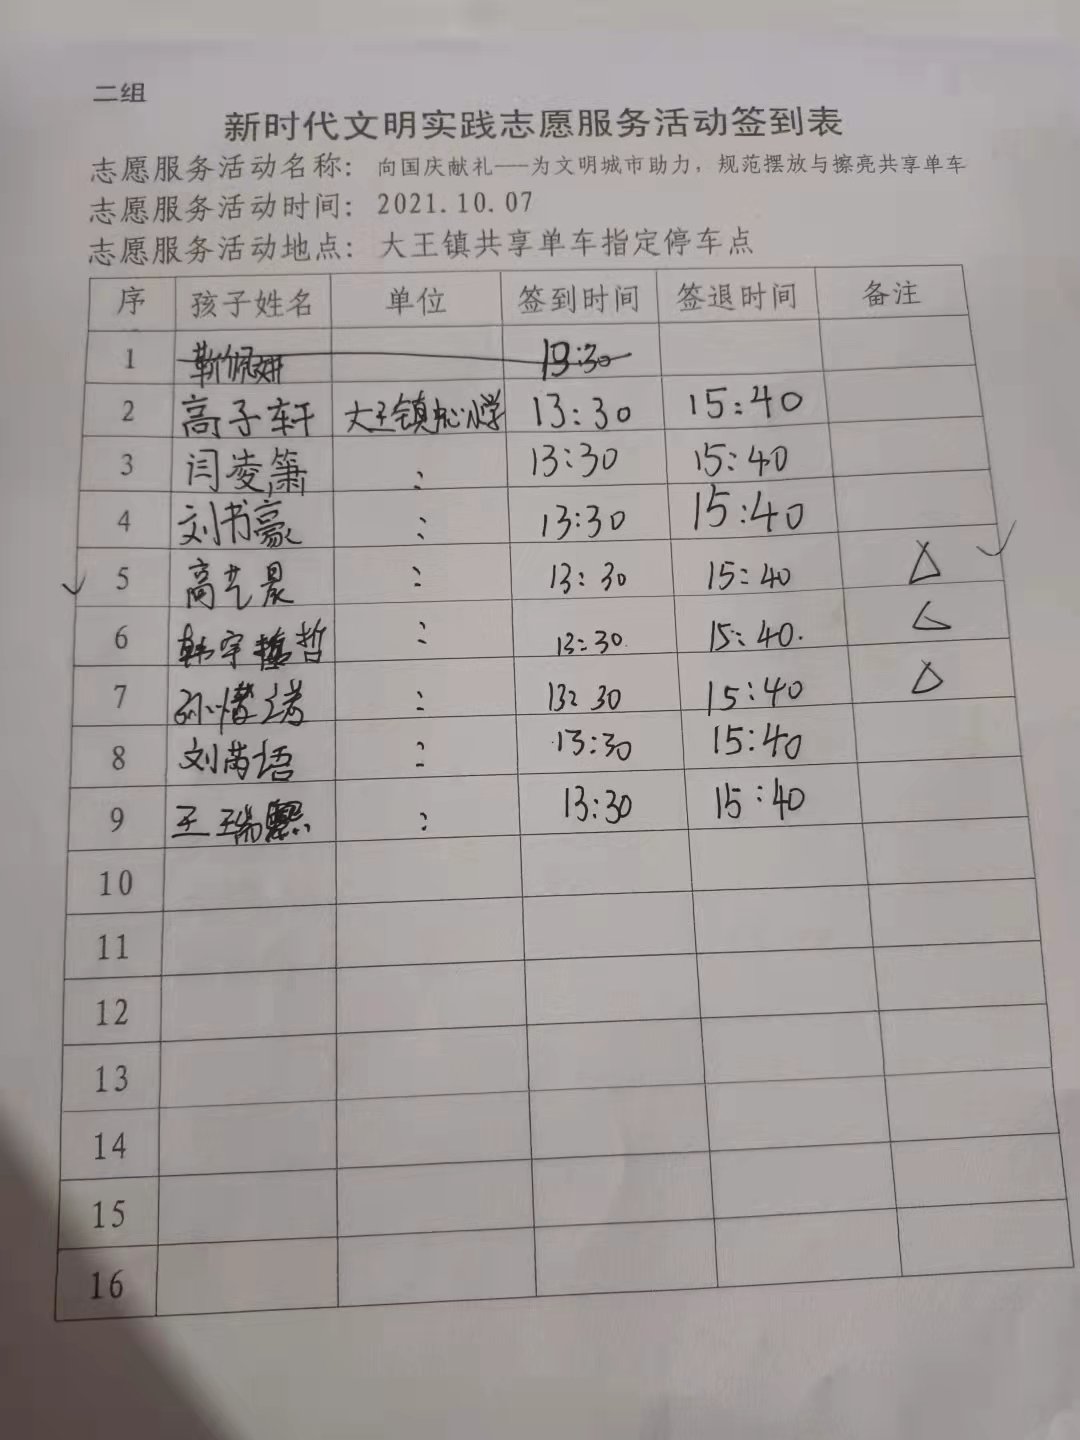 二组
新时代文明实践志愿服务活动签到表
志愿服务活动名称：向国庆献礼——为文明城市助力，规范摆放与擦亮共享单车
志愿服务活动时间：2021.10.07
志愿服务活动地点：大王镇共享单车指定停车点
序 孩子姓名 单位 签到时间 签退时间 备注
1 靳佩妍 13:30
2 高子轩 大王镇中心小学 13:30 15:40
3 闫凌箫 : 13:30 15:40
4 刘书豪 : 13:30 15:40
5 高艺晨 : 13:30 15:40 △
6 韩宇哲 : 13:30 15:40.
7 孙 : 13:30 15:40 △
8 刘芮语 : 13:30 15:40
9 王瑞熙 : 13:30 15:40
10
11
12
13
14
15
16